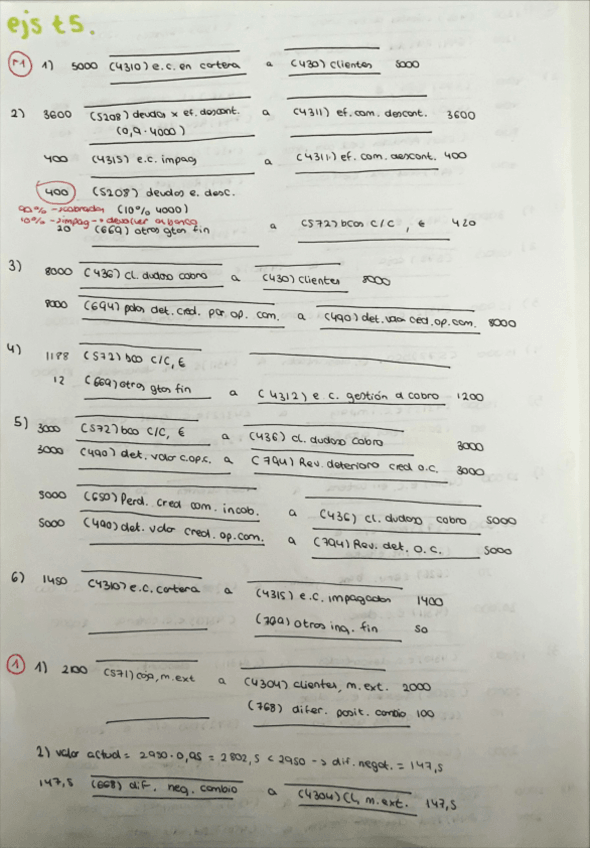 ejs t5.
r1 1) 5000 (4310) e.c. en cartera a (430) clientes 5000
2) 3600 (5208) deudas x ef. descont. a (4311) ef. com. descont. 3600
(0,9 · 4000)
400 (4315) e.c. impag a (4311) ef. com. descont. 400
400 (5208) deudas e. desc.
90% → cobrados (10% 4000)
10% → impag → devolver al banco
20 (669) otros gtos fin a (572) bcos C/C, € 420
3) 8000 (436) cl. dudoso cobro a (430) clientes 8000
8000 (694) pdas det. cred. por op. com. a (490) det. valor cred. op. com. 8000
4) 1188 (572) bco C/C, €
12 (669) otros gtos fin a (4312) e.c. gestión d cobro 1200
5) 3000 (572) bco C/C, € a (436) cl. dudoso cobro 3000
3000 (490) det. valor c.op.c. a (794) Rev. deterioro cred o.c. 3000
5000 (650) Perd. cred com. incob. a (436) cl. dudoso cobro 5000
5000 (490) det. valor cred. op. com. a (794) Rev. det. o.c. 5000
6) 1450 (4310) e.c. cartera a (4315) e.c. impagados 1400
(769) otros ing. fin 50
1 1) 2100 (571) caja, m. ext a (4304) clientes, m. ext. 2000
(768) difer. posit. cambio 100
2) valor actual = 2950 · 0,95 = 2802,5 < 2950 → dif. negat. = 147,5
147,5 (668) dif. neg. cambio a (4304) Cl, m. ext. 147,5